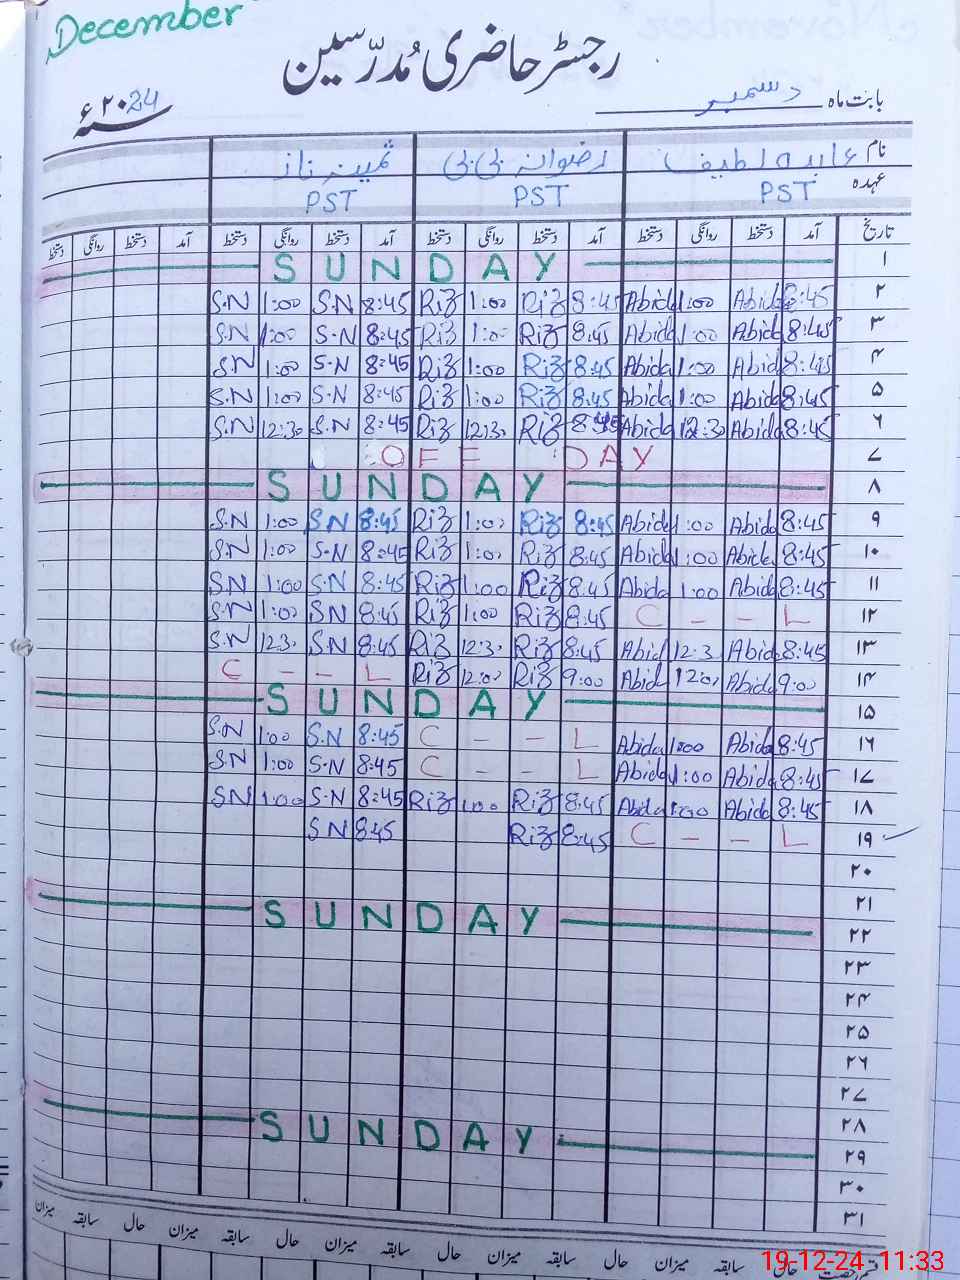 December
رجسٹر حاضری مُدرّسین
بابت ماہ دسمبر ۲۰24ء
نام عابدہ لطیف رضوانہ بی بی ثمینہ ناز
عہدہ PST PST PST
تاریخ آمد دستخط روانگی دستخط آمد دستخط روانگی دستخط آمد دستخط روانگی دستخط آمد دستخط روانگی دستخط
۱ SUNDAY
۲ 8:45 Abida 1:00 Abida 8:45 Riz 1:00 Riz 8:45 S.N 1:00 S.N
۳ 8:45 Abida 1:00 Abida 8:45 Riz 1:00 Riz 8:45 S.N 1:00 S.N
۴ 8:45 Abida 1:00 Abida 8:45 Riz 1:00 Riz 8:45 S.N 1:00 S.N
۵ 8:45 Abida 1:00 Abida 8:45 Riz 1:00 Riz 8:45 S.N 1:00 S.N
۶ 8:45 Abida 12:30 Abida 8:45 Riz 12:30 Riz 8:45 S.N 12:30 S.N
۷ OFF DAY
۸ SUNDAY
۹ 8:45 Abida 1:00 Abida 8:45 Riz 1:00 Riz 8:45 S.N 1:00 S.N
۱۰ 8:45 Abida 1:00 Abida 8:45 Riz 1:00 Riz 8:45 S.N 1:00 S.N
۱۱ 8:45 Abida 1:00 Abida 8:45 Riz 1:00 Riz 8:45 S.N 1:00 S.N
۱۲ C - - L 8:45 Riz 1:00 Riz 8:45 S.N 1:00 S.N
۱۳ 8:45 Abid 12:3 Abid 8:45 Riz 12:3 Riz 8:45 S.N 12:3 S.N
۱۴ 9:00 Abid 12:0 Abid 9:00 Riz 12:0 Riz C - - L
۱۵ SUNDAY
۱۶ 8:45 Abida 1:00 Abida C - - L 8:45 S.N 1:00 S.N
۱۷ 8:45 Abida 1:00 Abida C - - L 8:45 S.N 1:00 S.N
۱۸ 8:45 Abida 1:00 Abida 8:45 Riz 1:00 Riz 8:45 S.N 1:00 S.N
۱۹ C - - L 8:45 Riz 8:45 S.N
۲۰
۲۱
۲۲ SUNDAY
۲۳
۲۴
۲۵
۲۶
۲۷
۲۸
۲۹ SUNDAY
۳۰
۳۱
قسم رخصت حال سابقہ میزان حال سابقہ میزان حال سابقہ میزان حال سابقہ میزان
19-12-24 11:33